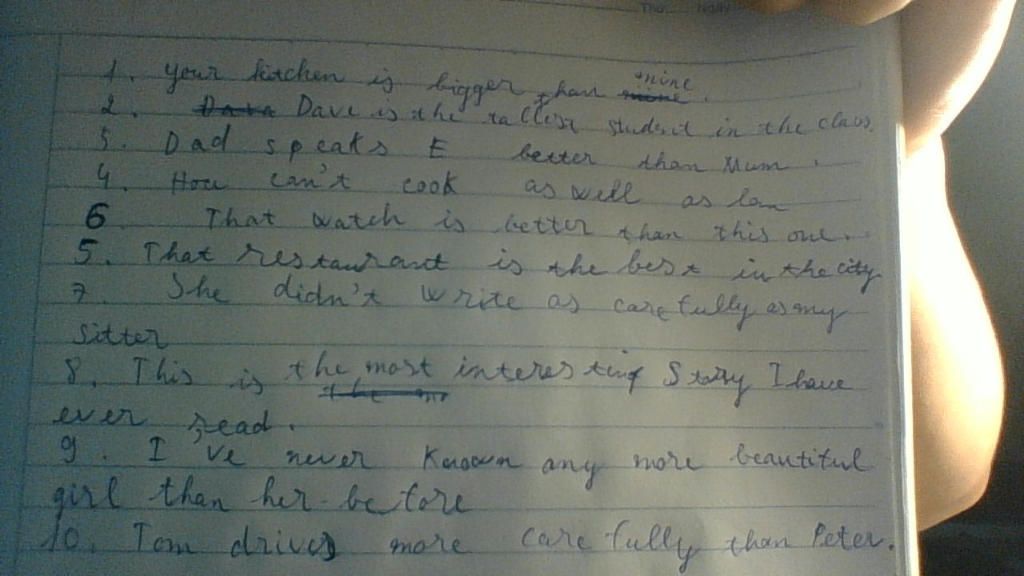 1. Your kitchen is bigger than mine.
2. Dave is the tallest student in the class.
3. Dad speaks E better than Mum.
4. How can't cook as well as Ian
6 That watch is better than this one.
5. That restaurant is the best in the city.
7 She didn't write as carefully as my
sitter
8. This is the most interesting Story I have
ever read.
9. I've never known any more beautiful
girl than her before
10. Tom drives more carefully than Peter.